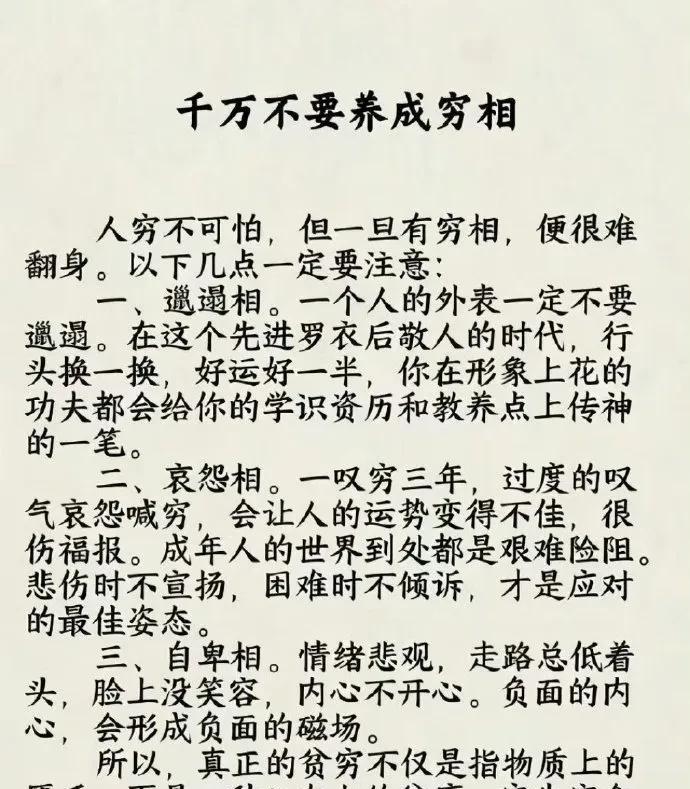 千万不要养成穷相
人穷不可怕，但一旦有穷相，便很难
翻身。以下几点一定要注意：
一、邋遢相。一个人的外表一定不要
邋遢。在这个先进罗衣后敬人的时代，行
头换一换，好运好一半，你在形象上花的
功夫都会给你的学识资历和教养点上传神
的一笔。
二、哀怨相。一叹穷三年，过度的叹
气哀怨喊穷，会让人的运势变得不佳，很
伤福报。成年人的世界到处都是艰难险阻。
悲伤时不宣扬，困难时不倾诉，才是应对
的最佳姿态。
三、自卑相。情绪悲观，走路总低着
头，脸上没笑容，内心不开心。负面的内
心，会形成负面的磁场。
所以，真正的贫穷不仅是指物质上的